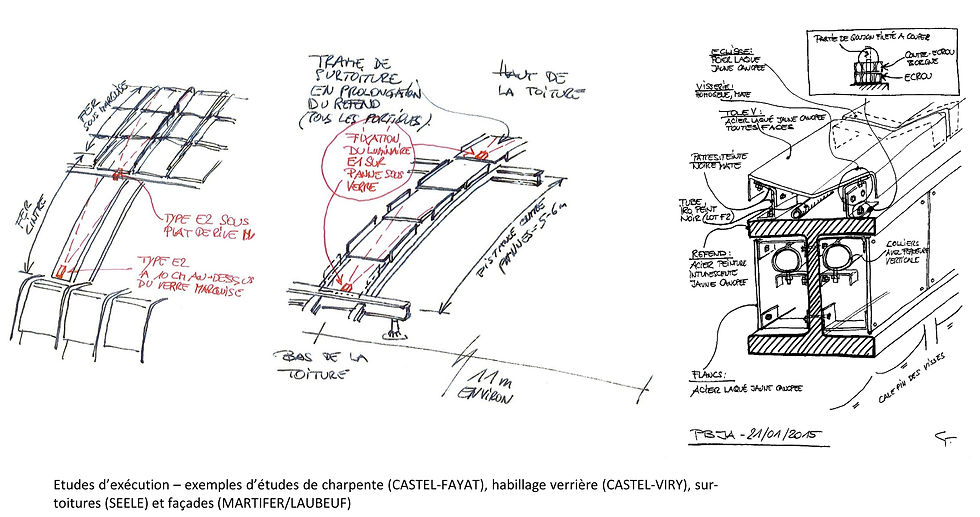 FER
SOUS MARQUISE
FER
CINTRE
TYPE E2 SOUS
PLAT DE RIVE
TYPE E2
A 10 CM AU-DESSUS
DU VERRE MARQUISE
TRAME DE
SURTOITURE
EN PROLONGATION
DU REFEND
(TOUS LES PORTIQUES).
HAUT DE
LA TOITURE
FIXATION
DU LUMINAIRE
E1 SUR
PANNE SOUS
VERRE
DISTANCE ENTRE
PANNES = 5-6m
BAS DE LA
TOITURE
11m
ENVIRON
PARTIE DE GOUJON FILETÉ A COUPER
CONTRE-ECROU
BORGNE
ECROU
ECLISSE:
POUR LAQUE
JAUNE CANOPEE
VISSERIE:
HOMOGENE, MATE
TOLE V:
ACIER LAQUÉ JAUNE CANOPEE
TOUTES FACES
PATTES: TEINTE
NOIRE MATE
TUBE
IRO PEINT
NOIR (LOT F2)
REFEND:
ACIER PEINTURE
INTUMESCENTE
JAUNE CANOPÉE
COLLIERS
VERTICALE
FLANCS:
ACIER LAQUÉ JAUNE CANOPEE
CALEPIN DES VISSES
PBJA - 21/01/2015
Etudes d’exécution – exemples d’études de charpente (CASTEL-FAYAT), habillage verrière (CASTEL-VIRY), sur-
toitures (SEELE) et façades (MARTIFER/LAUBEUF)